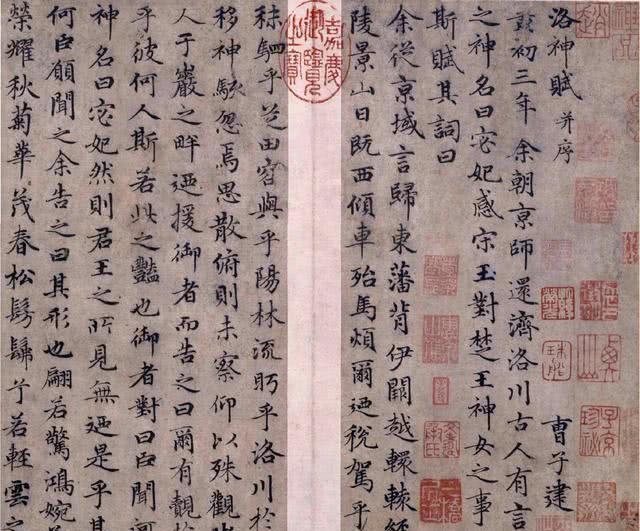 洛神賦 并序 曹子建
初三年余朝京師還濟洛川古人有言
之神名曰宓妃感宋王對楚王神女之事
斯賦其詞曰
余從京域言歸東藩背伊闕越轘轅經
陵景山日既西傾車殆馬煩爾迺稅駕乎
嘉慶御覽之寶
秣駟乎芝田容與乎陽林流眄乎洛川於
移神駭忽焉思散俯則未察仰以殊觀
人于巖之畔迺援御者而告之曰爾有覿於
乎彼何人斯若此之豔也御者對曰臣聞河
神名曰宓妃然則君王之所見無迺是乎其
何臣願聞之余告之曰其形也翩若驚鴻婉
榮耀秋菊華茂春松髣髴兮若輕雲之